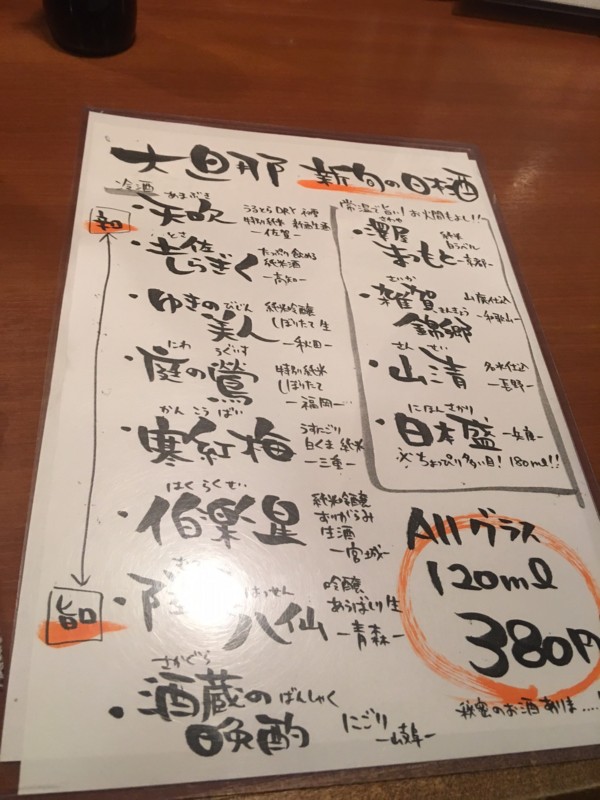 大旦那 新旬の日本酒
冷酒
辛口
あまぶき
・天吹 うるとらDRY
特別純米
－佐賀－
とさ
・土佐しらぎく
たっぷり飲める
純米酒
－高知－
びじん
・ゆきの美人
純米吟醸
しぼりたて生
－秋田－
にわ うぐいす
・庭の鶯
特別純米
しぼりたて
－福岡－
かん こう ばい
・寒紅梅
うすにごり
白くま 純米
－三重－
はくらくせい
・伯楽星
純米吟醸
おりがらみ
生酒
－宮城－
旨口
はっせん
八仙
吟醸
あらばしり生
－青森－
さかぐら
・酒蔵の ばんしゃく
晩酌
にごり
－岐阜－
常温で旨い！お燗もよし！！
さわや
・澤屋まつもと
純米
白ラベル
－京都－
さいか
・雑賀
錦郷
山廃仕込
－和歌山－
さん せい
・山清
－長野－
にほんさかり
・日本盛 －兵庫－
※ちょっぴり多い目！180ml！！
Allグラス
120ml
380円
秘密のお酒あります....